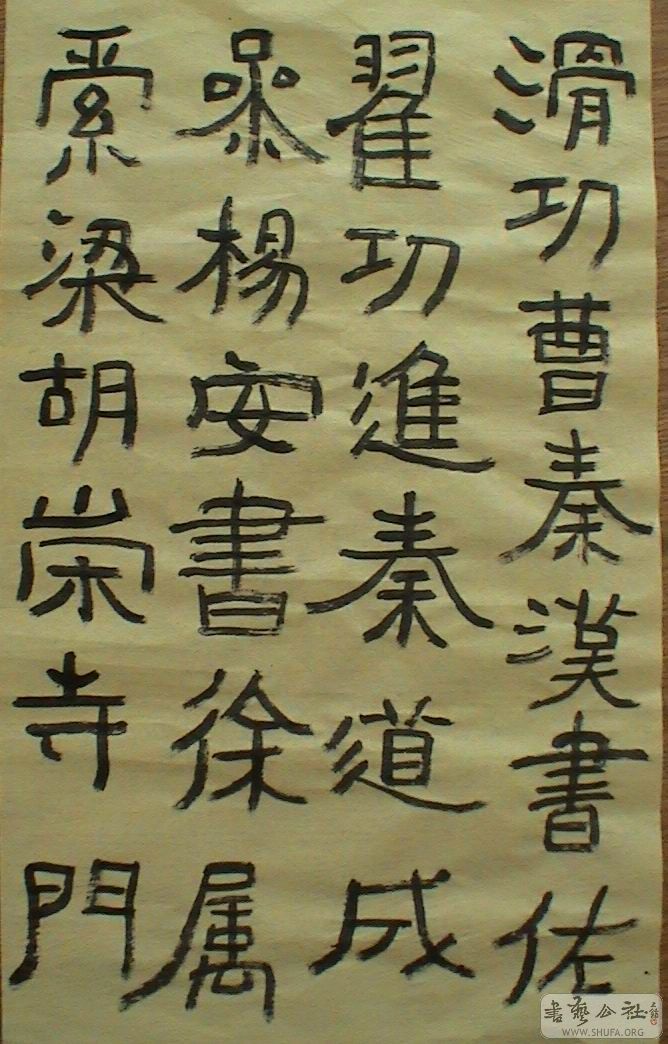 滑功曹秦漢書佐
翟功進秦道成
楊安書徐属
索梁胡崇寺門
書藝公社
WWW.SHUFA.ORG